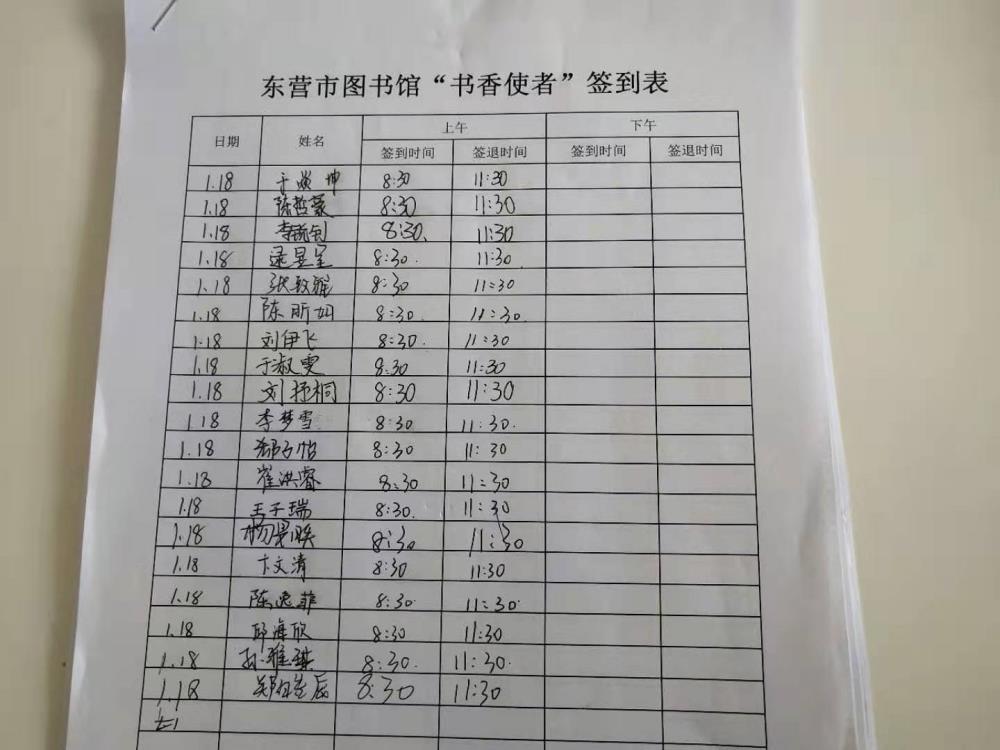 东营市图书馆“书香使者”签到表
日期 姓名 上午 下午
签到时间 签退时间 签到时间 签退时间
1.18 于 坤 8:30 11:30
1.18 陈哲豪 8:30 11:30
1.18 李毓钊 8:30. 11:30
1.18 昱呈 8:30. 11:30
1.18 张 8:30 11:30
1.18 陈昕妲 8:30. 11:30.
1.18 刘伊飞 8:30. 11:30
1.18 于淑雯 8:30 11:30
1.18 刘抒桐 8:30 11:30
1.18 李梦雪 8:30 11:30.
1.18 子怡 8:30 11:30
1.18 崔洪睿 8:30 11:30
1.18 王子瑞 8:30. 11:30
1.18 杨景 8:30 11:30
1.18 卞文清 8:30 11:30
1.18 陈逸菲 8:30. 11:30.
1.18 邱海欣 8:30 11:30
1.18 孙雅琪 8:30. 11:30.
1.18 郑 辰 8:30 11:30